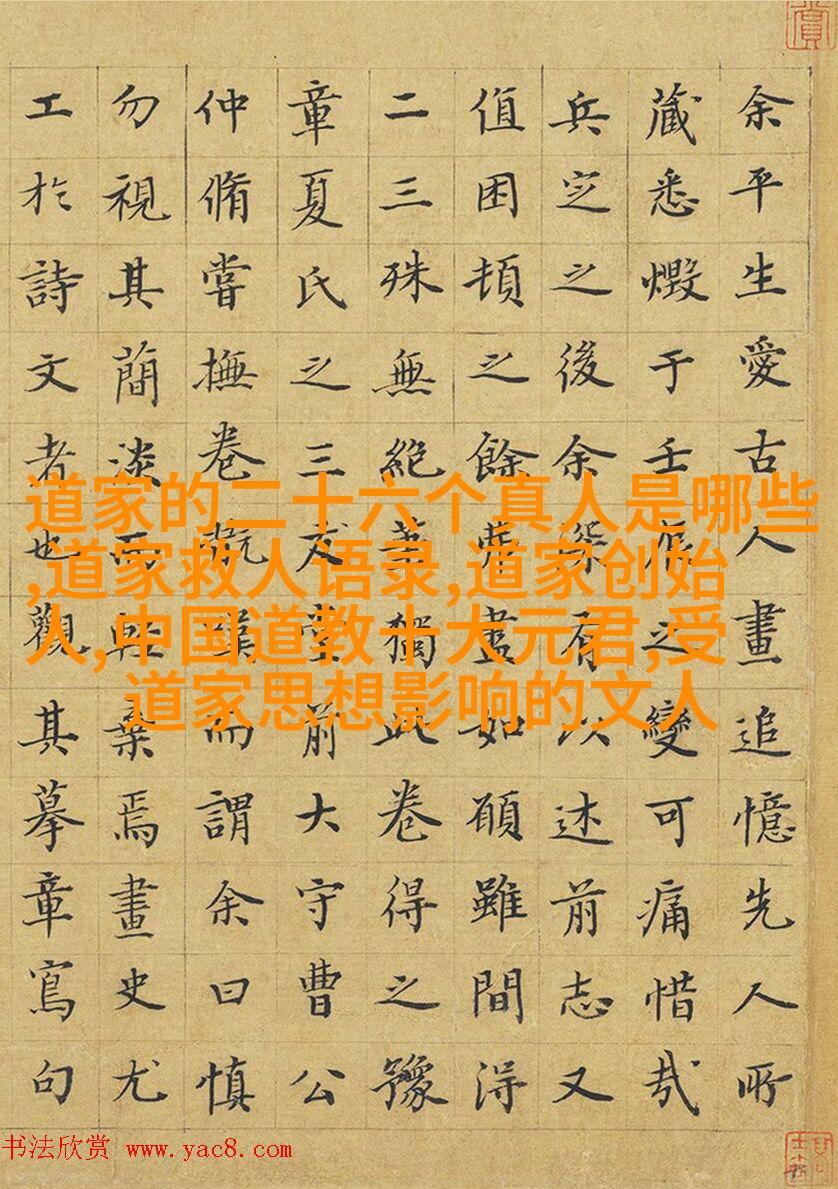 余平生愛古人畫追憶先人所
藏悉燬于壬辰之變可痛惜哉
兵定之後余深有以述前志又
值困頓之餘盡如願雖間得
二三殊無絕筆獨此卷得之豫
章夏氏之三友堂前大守曹公
仲脩嘗撫卷翫嘆而謂余曰慎
勿視其簡淡而輕棄焉畫史尤
工於詩文者也觀其摹章寫句
道家的二十六个真人是哪些
,道家救人语录,道家创始
人,中国道教十大元君,受
道家思想影响的文人
书法欣赏 www.yac8.com